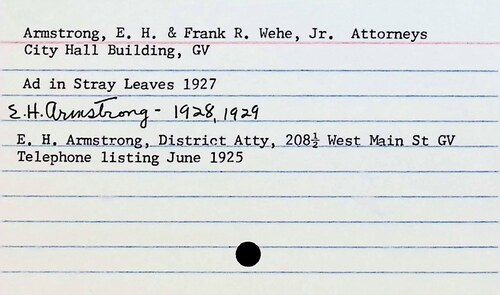 Armstrong, E. H. & Frank R. Wehe, Jr. Attorneys
City Hall Building, GV
Ad in Stray Leaves 1927
E.H. Armstrong - 1928, 1929
E. H. Armstrong, District Atty, 208½ West Main St GV
Telephone listing June 1925